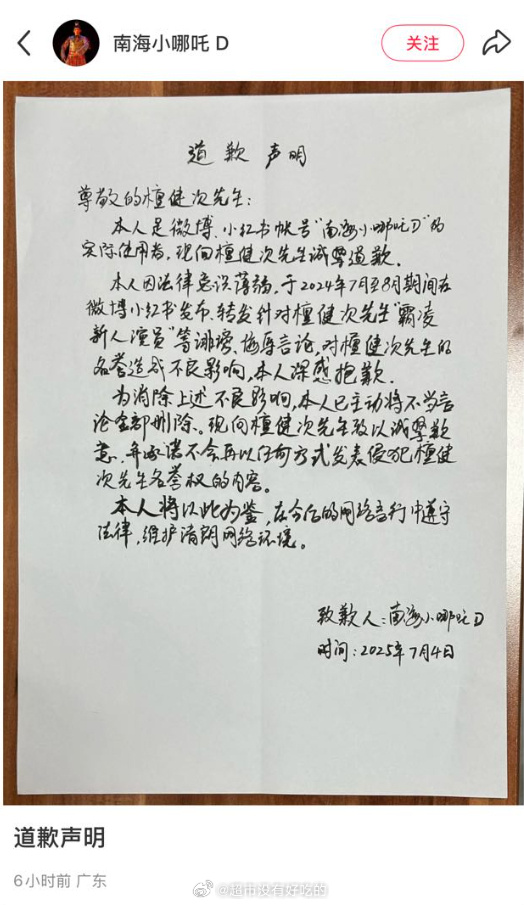 南海小哪吒 D
关注
道歉声明
尊敬的檀健次先生：
本人是微博、小红书帐号“南海小哪吒D”的
实际使用者，现向檀健次先生诚挚道歉。
本人因法律意识薄弱，于2024年7月至8月期间在
微博小红书发布、转发针对檀健次先生“霸凌
新人演员”等诽谤、侮辱言论，对檀健次先生的
名誉造成不良影响，本人深感抱歉．
为消除上述不良影响，本人已主动将不当言
论全部删除。现向檀健次先生致以诚挚歉
意，并承诺不会再以任何方式发表侵犯檀健
次先生名誉权的内容。
本人将以此为鉴，在今后的网络言行中遵守
法律，维护清朗网络环境。
致歉人：南海小哪吒D
时间：2025年7月4日
道歉声明
6小时前 广东
@超市没有好吃的